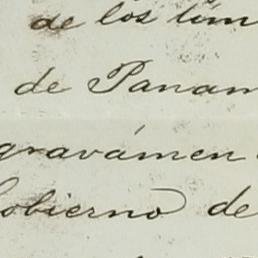 de los lím
de Panam
gravámen
obierno de